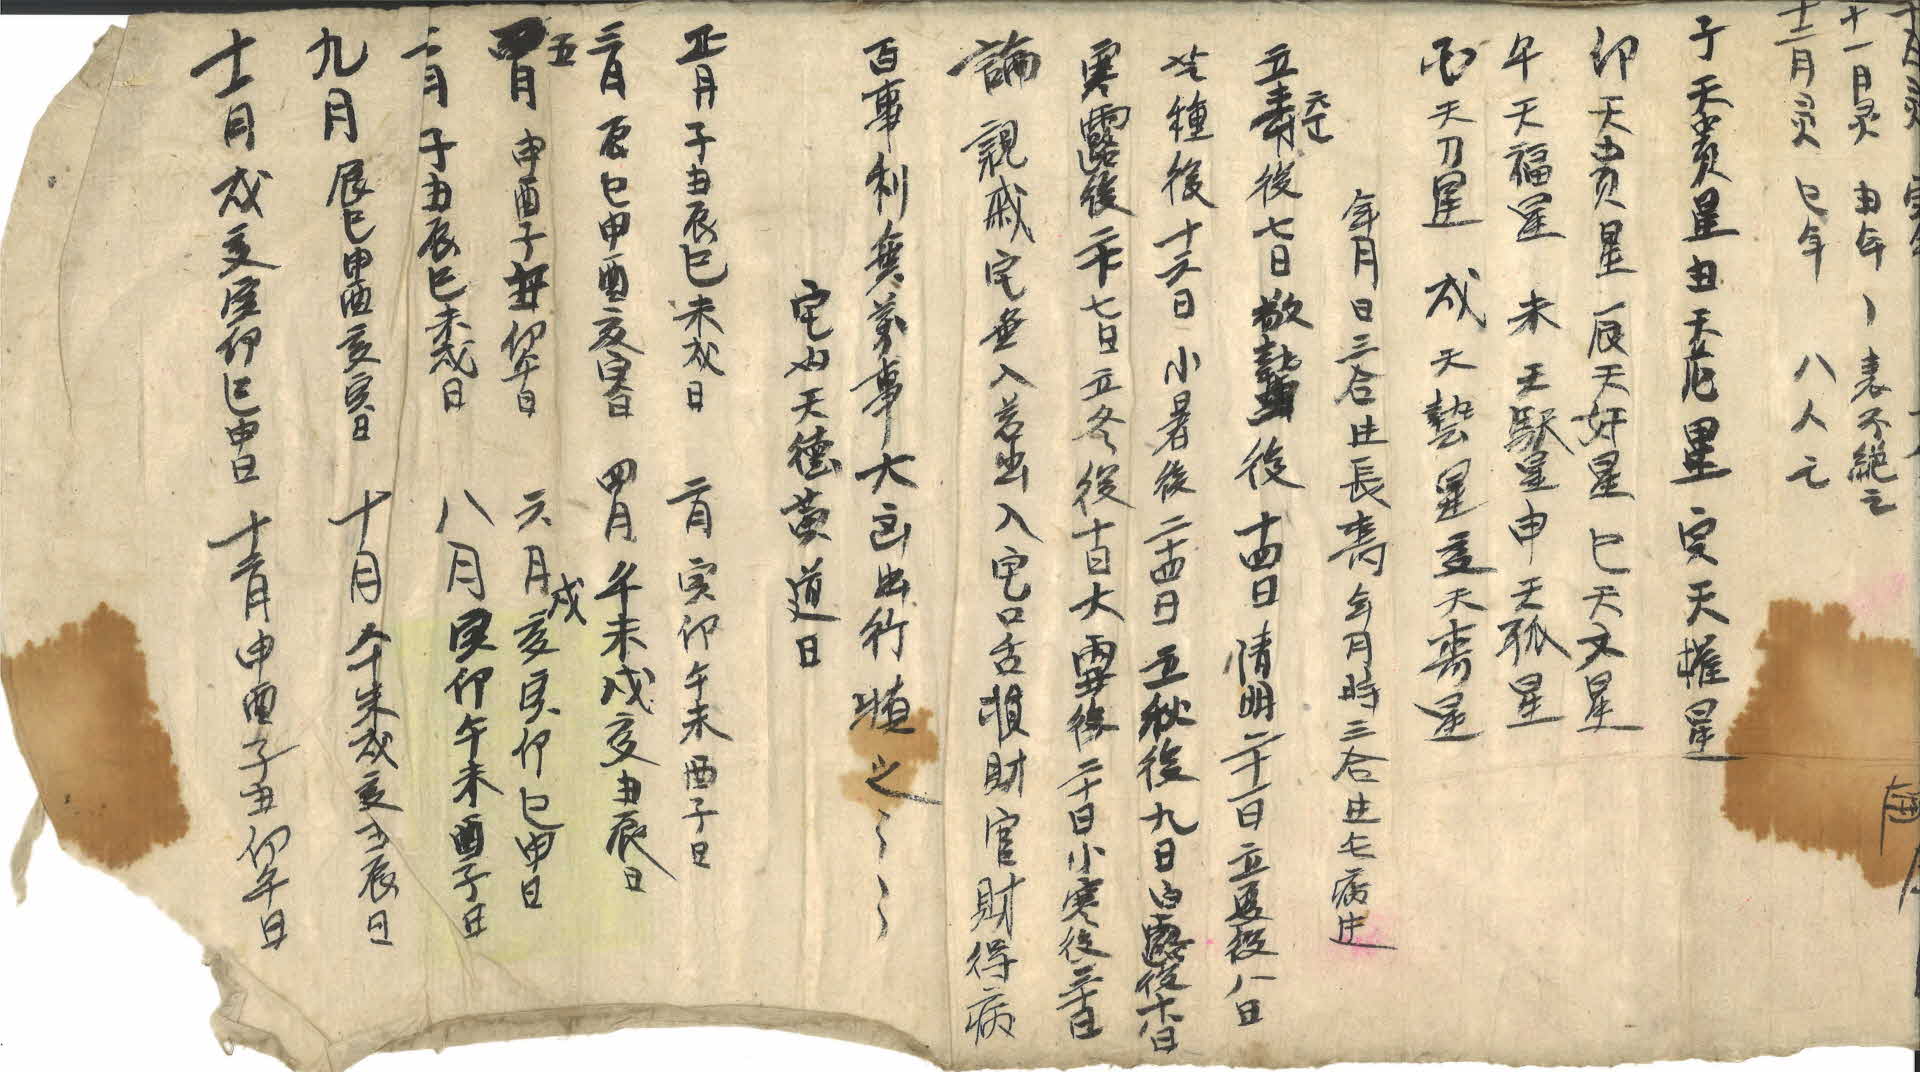 十一月灵 丑年 表不絕之
十二月灵 巳年 八人之
子天貴星丑天厄星寅天權星
卯天貴星辰天奸星巳天文星
午天福星 未天馹星申天孤星
酉天刀星 戌天藝星亥天寿星
年月日三合生長寿年月時三合生七病生
立春後七日驚蟄後十四日情明二十一日立夏後八日
芒種後十六日小暑後二十四日立秋後九日白露後十八日
寒露後二十七日立冬後十日大雪後二十日小寒後三十日
論親戚宅無入若出入宅口舌損財官財得病
百事利無萬事大吉出行順之
宅内天德黃道日
正月子丑辰巳未戌日 二月寅卯午未酉子日
三月辰巳申酉亥寅日 四月午未戌亥丑辰日
五月申酉子丑卯午日 六月戌亥寅卯巳申日
月子丑辰巳未戌日 八月寅卯午未酉子日
九月辰巳申酉亥寅日 十月午未戌亥丑辰日
十一月戌亥寅卯巳申日 十二月申酉子丑卯午日